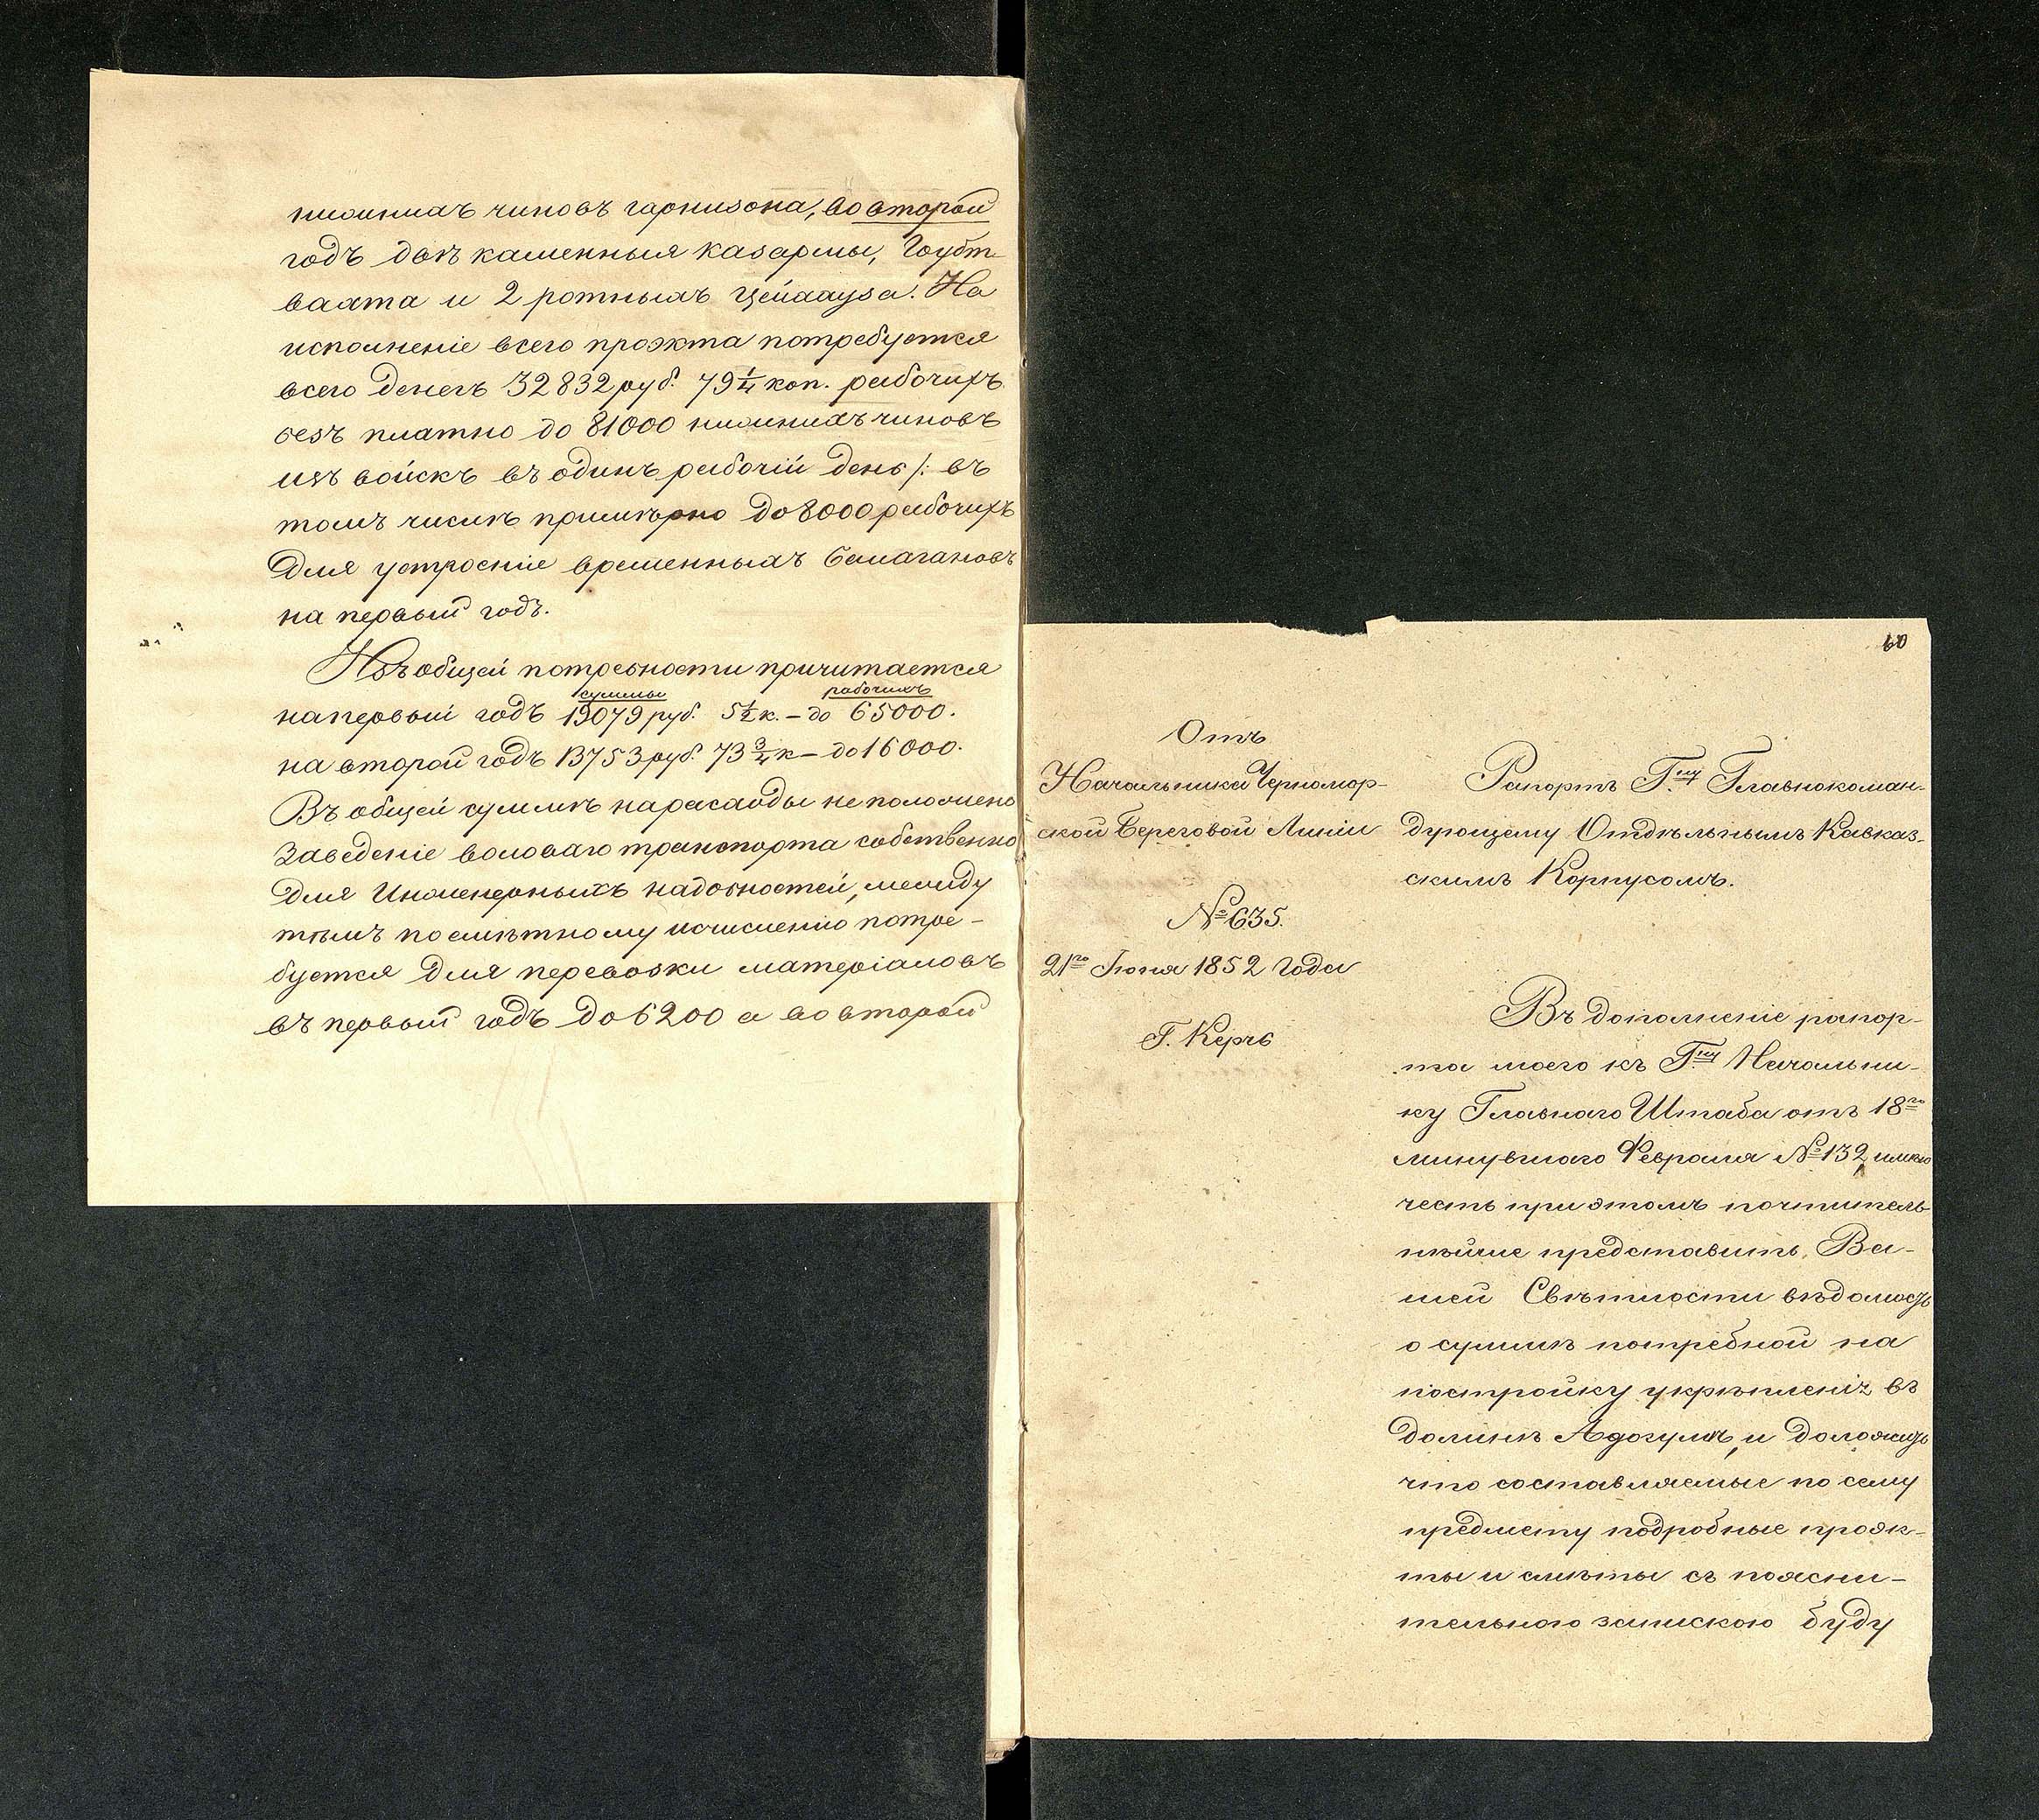 нижнихъ чиновъ гарнизона, во второй
годъ двѣ каменныя казармы, Гоубт
вахта и 2 ротныхъ Цейхауза. На
исполненіе всего проэкта потребуется
всего денегъ 32832 руб. 79 1/4 коп. рабочихъ
безъ платно до 81000 нижнихъ чиновъ
изъ войскъ въ одинъ рабочій день /: въ
томъ числѣ примѣрно до 8000 рабочихъ
Для устроеніе временныхъ балагановъ
на первый годъ.
Изъ общей потребности причитается
суммы рабочихъ
на первый годъ 19079 руб. 5 1/2 к. – до 65000.
на второй годъ 13753 руб. 73 3/4 к – до 16000.
Въ общей суммѣ на расходы не положено
Заведеніе воловаго транспорта собственно
Для Инженерныхъ надобностей, между
тѣмъ по смѣтному исчисленію потре-
буется Для перевозки матеріаловъ
въ первый годъ до 6200 а во второй
60
Отъ
Начальника Черномор-
ской Береговой Линіи
№ 635.
21го Іюня 1852 Года
Г. Керчь
Рапортъ Гну Главнокоман-
дующему Отдѣльнымъ Кавказ-
скимъ Корпусомъ.
Въ дополненіе рапор-
та моего къ Гну Начальни-
ку Главнаго Штаба отъ 18го
минувшаго Февраля № 132, имѣю
честь при этомъ почтитель-
нѣйше представить, Ва-
шей Свѣтлости вѣдомость
о суммѣ потребной на
постройку укрѣпленія въ
долинѣ Адогумъ, и доложить
что составляемые по сему
предмету подробные проэк-
ты и смѣты съ поясни-
тельною запискою буду